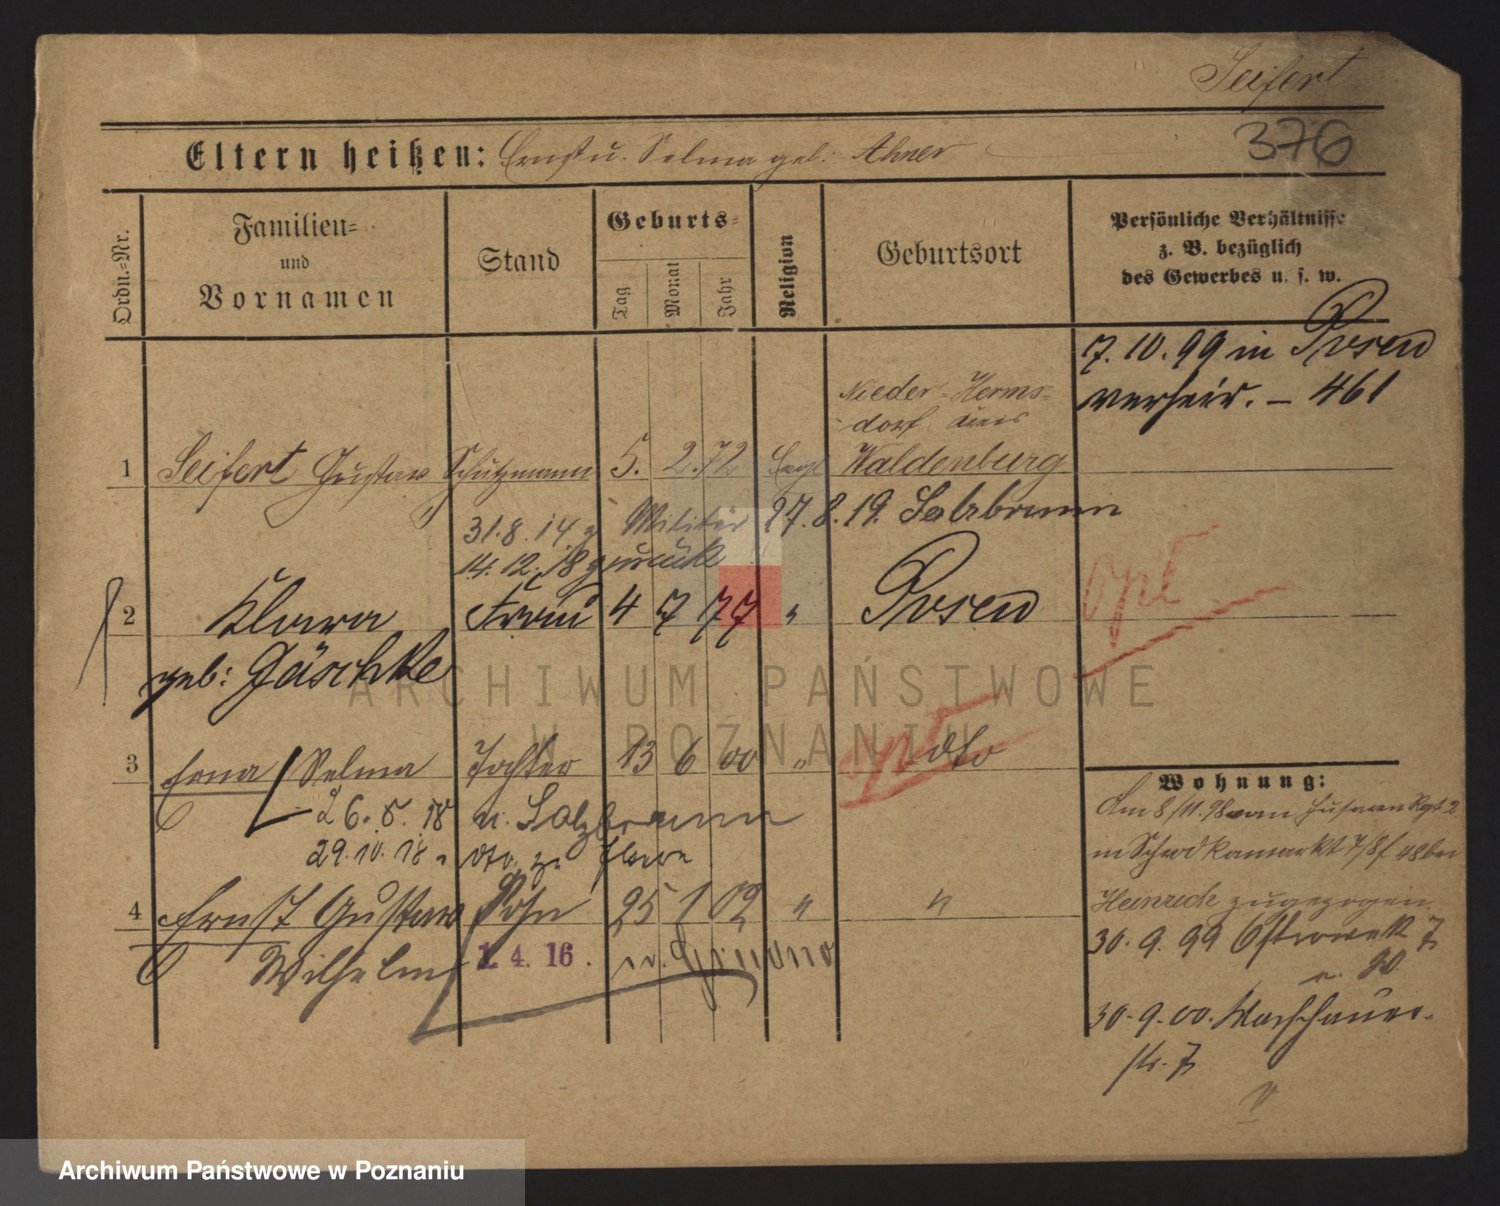 Seifert
376
Eltern heißen: Ernst u. Selma geb. Ahner
Ordn.-Nr.
Familien-
und
Vornamen
Stand
Geburts-
Tag
Monat
Jahr
Religion
Geburtsort
Persönliche Verhältnisse
z. B. bezüglich
des Gewerbes u. s. w.
7. 10. 99 in Posen
verheir. – 461
Nieder-Herms-
dorf Kreis
1 Seifert Gustav Schutzmann 5. 2. 72 Evgl Waldenburg
31. 8. 14 z Militär 27. 8. 19. Salzbrunn
14. 12. 18 zurück
2 Klara Frau 4 7 77 " Posen
geb: Jäschke
opt
3 Erna Selma Tochter 13 6 00 " dto
26. 5. 18 n. Salzbrunn
29. 10. 18 "
4 Ernst Gustav Sohn 25 1 02 " "
Wilhelm 1. 4. 16.
Wohnung:
Am 8/11. 98 vom Husaren Rgt. 2
in Schrodkamarkt 7/8 bei
Heinrich zugezogen.
30. 9. 99 Ostrowek 7
30. 9. 00. Warschauer-
str. 7
ARCHIWUM PAŃSTWOWE
W POZNANIU
Archiwum Państwowe w Poznaniu